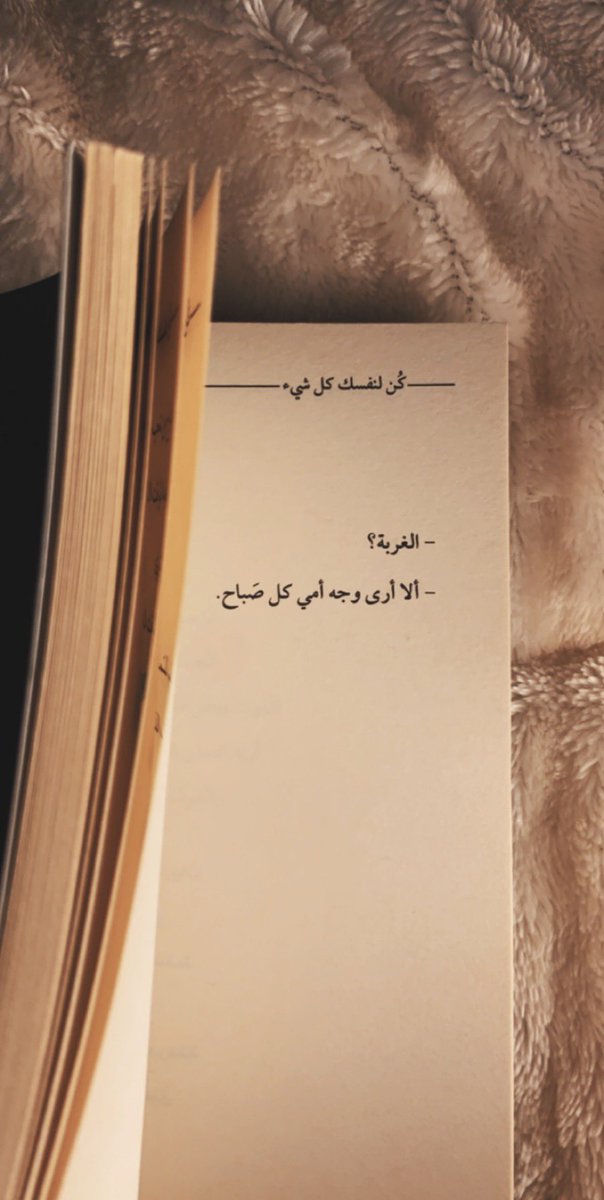 كُن لنفسك كل شيء
– الغربة؟
– ألا أرى وجه أمي كل صَباح.